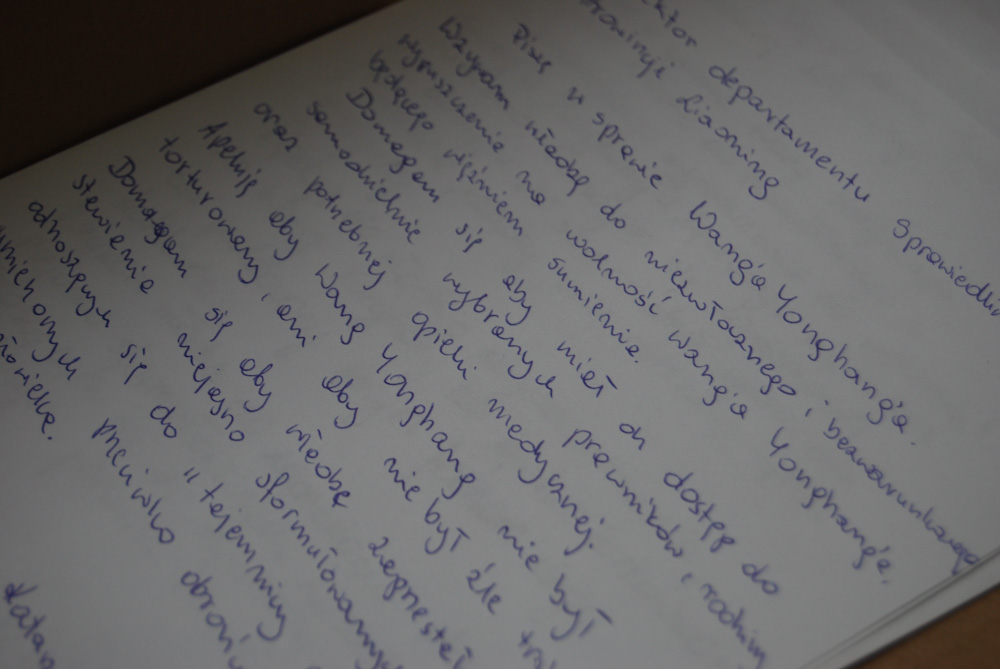 departamentu sprawiedliw
prowincji Liaoning
Piszę w sprawie Wang'a Yonghang'a.
Wzywam władzę do niezwłocznego i bezwarunkowego
wypuszczenia na wolność Wang'a Yonghang'a,
będącego więźniem sumienia.
Domagam się aby miał on dostęp do
samodzielnie wybranych prawników, rodziny
oraz potrzebnej opieki medycznej.
Apeluję aby Wang Yonghang nie był
torturowany, ani aby nie był źle
Domagam się aby władze zaprzestał
stawiania niejasno sformułowanych
odnoszących się do "tajemnicy
przeciwko
człowieka.